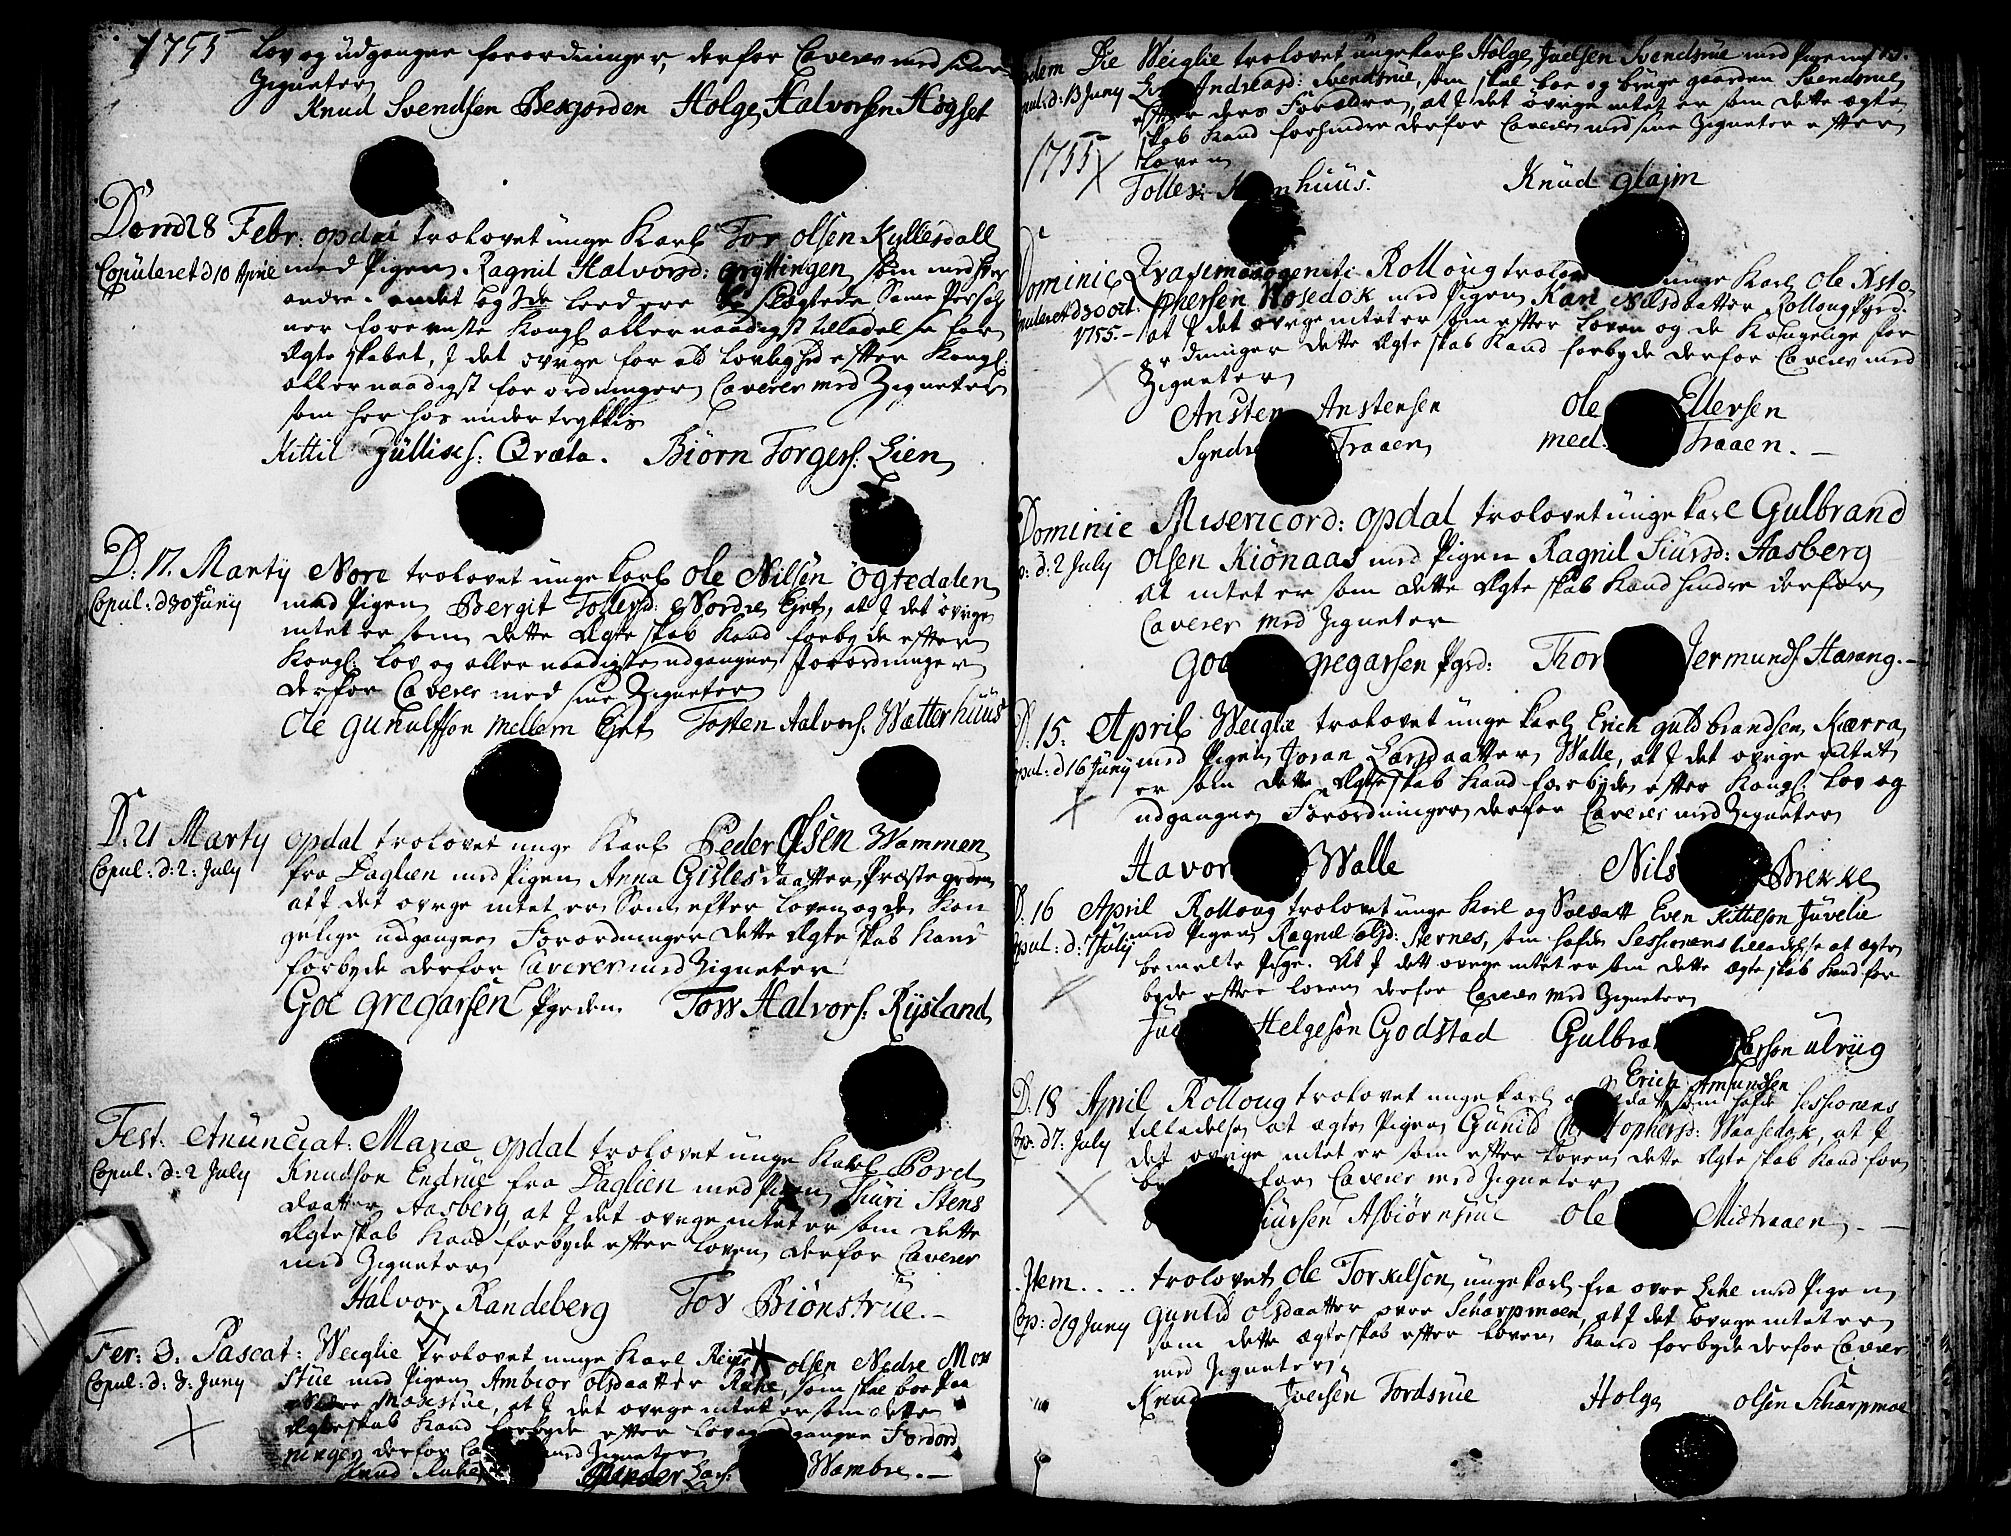 1755 Lov og udgangne forordninger, derfor Caverer med
Zigneter
Knud Svendsen Bexjorden Holge Halvorsen Högset
Dend 28 Febr: opdal trolovet unge Karl Tor olsen Kyllesdall
Copuleret d 10 Aprile med Pigen Ragnil Halvorsd: gryttingen som med hver
andre i andet og 3de leed ere
ner foreviiste Kongl: allernaadigst tilladelse for
Ægteskabet, I det øvrige for all lovlighed efter Kongl:
allernaadigst forordninger Caverer med Zigneter
som her hos undertrykkis
Kittil Gullics: Qræta. Biörn Torgers: Lien
D: 17. Marty Nore trolovet unge Karl ole Nilsen ögtedalen
Copul: d 30 Juny med Pigen Bergit Tollefsd: Nordre Ejet, at I det øvrige
intet er som dette Ægteskab Kand forbyde efter
Kongl: lov og allernaadigste udgangne forordninger
derfor Caverer med sine Zigneter
Ole Gunulfson mellem Ejet Tosten Halvors: Wætterhuus
D: 21 Marty opdal trolovet unge Karl Peder Olsen Wammen
Copul: d: 2: July fra Daglien med Pigen Anna Gislesdaatter Præstegrden
at I det øvrige intet er Som efter loven og de Kon
gelige udgangne Forordninger dette Ægteskab Kand
forbyde derfor Caverer med Zigneter
Goe gregarsen Pgrden. Tow Halvors: Rysland
Fest: Anunciat: Mariæ opdal trolovet unge Karl Pord
Copul: d: 2 July Knudson Endrue fra Daglien med Pigen Thuri Stens
daatter Aasberg, at I det øvrige intet er som dette
Ægteskab Kand forbyde efter loven derfor Caverer
med Zigneter
Halvor Randeberg Tov Biönstrue.
Fer: 3: Pascat: Weiglie trolovet unge Karl Reier olsen Nedre Moe
Copul: d: 3: Juny stue med Pigen Ambior olsdaatter Ruke, som skal boe paa
Nedre Moestue, at I det øvrige intet er som dette
Ægteskab Kand forbyde efter lov og udgangne Forord
ninger derfor med Zigneter
Knud Ruke Lars: Wambre.
Eodem Die Weiglie trolovet unge Karl Holge Juelsen Svendsrue med Pigen
Copul: d: 13 Juny Andreasd: Svendsrue, som skal boe og bruge gaarden Svendsrue
efter ders Forældre, at I det øvrige intet er som dette ægte
skab Kand forhindre derfor Caverer med sine Zigneter efter
1755 Loven
Tollef: huus. Knud glajm
Dominic Quasimodogeniti Rolloug trolovet unge Karl Ole Xsto
Copuleret d 30 oct: phersen Wosedok med Pigen Kari Nilsdaatter Rolloug Pgrd.
1755. at I det øvrige intet er som efter loven og de Kongelige for
ordninger dette Ægteskab Kand forbyde derfor Caverer med
Zigneter
Ansten Anstensen Ole Ellefsen
Syndre Traaen med. Traaen.
Dominic Misericord: opdal trolovet unge karl Gulbrand
Cop: d: 2 July Olsen Kiönaas med Pigen Ragnil Siursd: Aasberg
at intet er som dette Ægteskab Kand hindre derfor
Caverer med Zigneter
Goe gregarsen Pgrd: Thor Jermunds: Hasang.
D: 15: April Weiglie trolovet unge karl Erich guldbrandsen Kærra
Copul: d 16 Juny med Pigen Joran Larsdaatter Walle, at I det øvrige intet
er som dette Ægteskab Kand forbyde efter Kongl: lov og
udgangne Forordninger derfor Caverer med Zigneter
Havor Walle Nils Brekke
D: 16 April Rolloug trolovet unge Karl og Soldatt Even Kittilson Juvelie
Copul: d: 7 July med Pigen Ragnil olsd: Sternes, som hafde Sessionens tilladelse at ægte
bemelte Pige. At I dett øvrige intet er som dette ægteskab kand for
byde efter loven derfor Caverer med Zigneter
Helgesön Godstad Gulbra ulvüg
Erich Amundsen
D: 18 April Rolloug trolovet unge karl som hafde Sessionens
Cop: d 7: July tilladelse at ægte Pigen Gunild Christophersd: Waasedok, at I
det øvrige intet er som efter loven dette Ægteskab kand for
derfor Caverer med Zigneter
Siursen Asbiörnsrue Ole Midtraaen.
Item.... trolovet Ole Torkilson unge karl fra øvre Like med Pigen
Cop: d 19 Juny Gunild olsdaatter øvre Scharpmoen, at I det øvrige intet er
som dette ægteskab efter loven Kand forbyde derfor Caverer
med Zigneter
Knud Iversen Tordsrue Holge olsen Scharpmoe